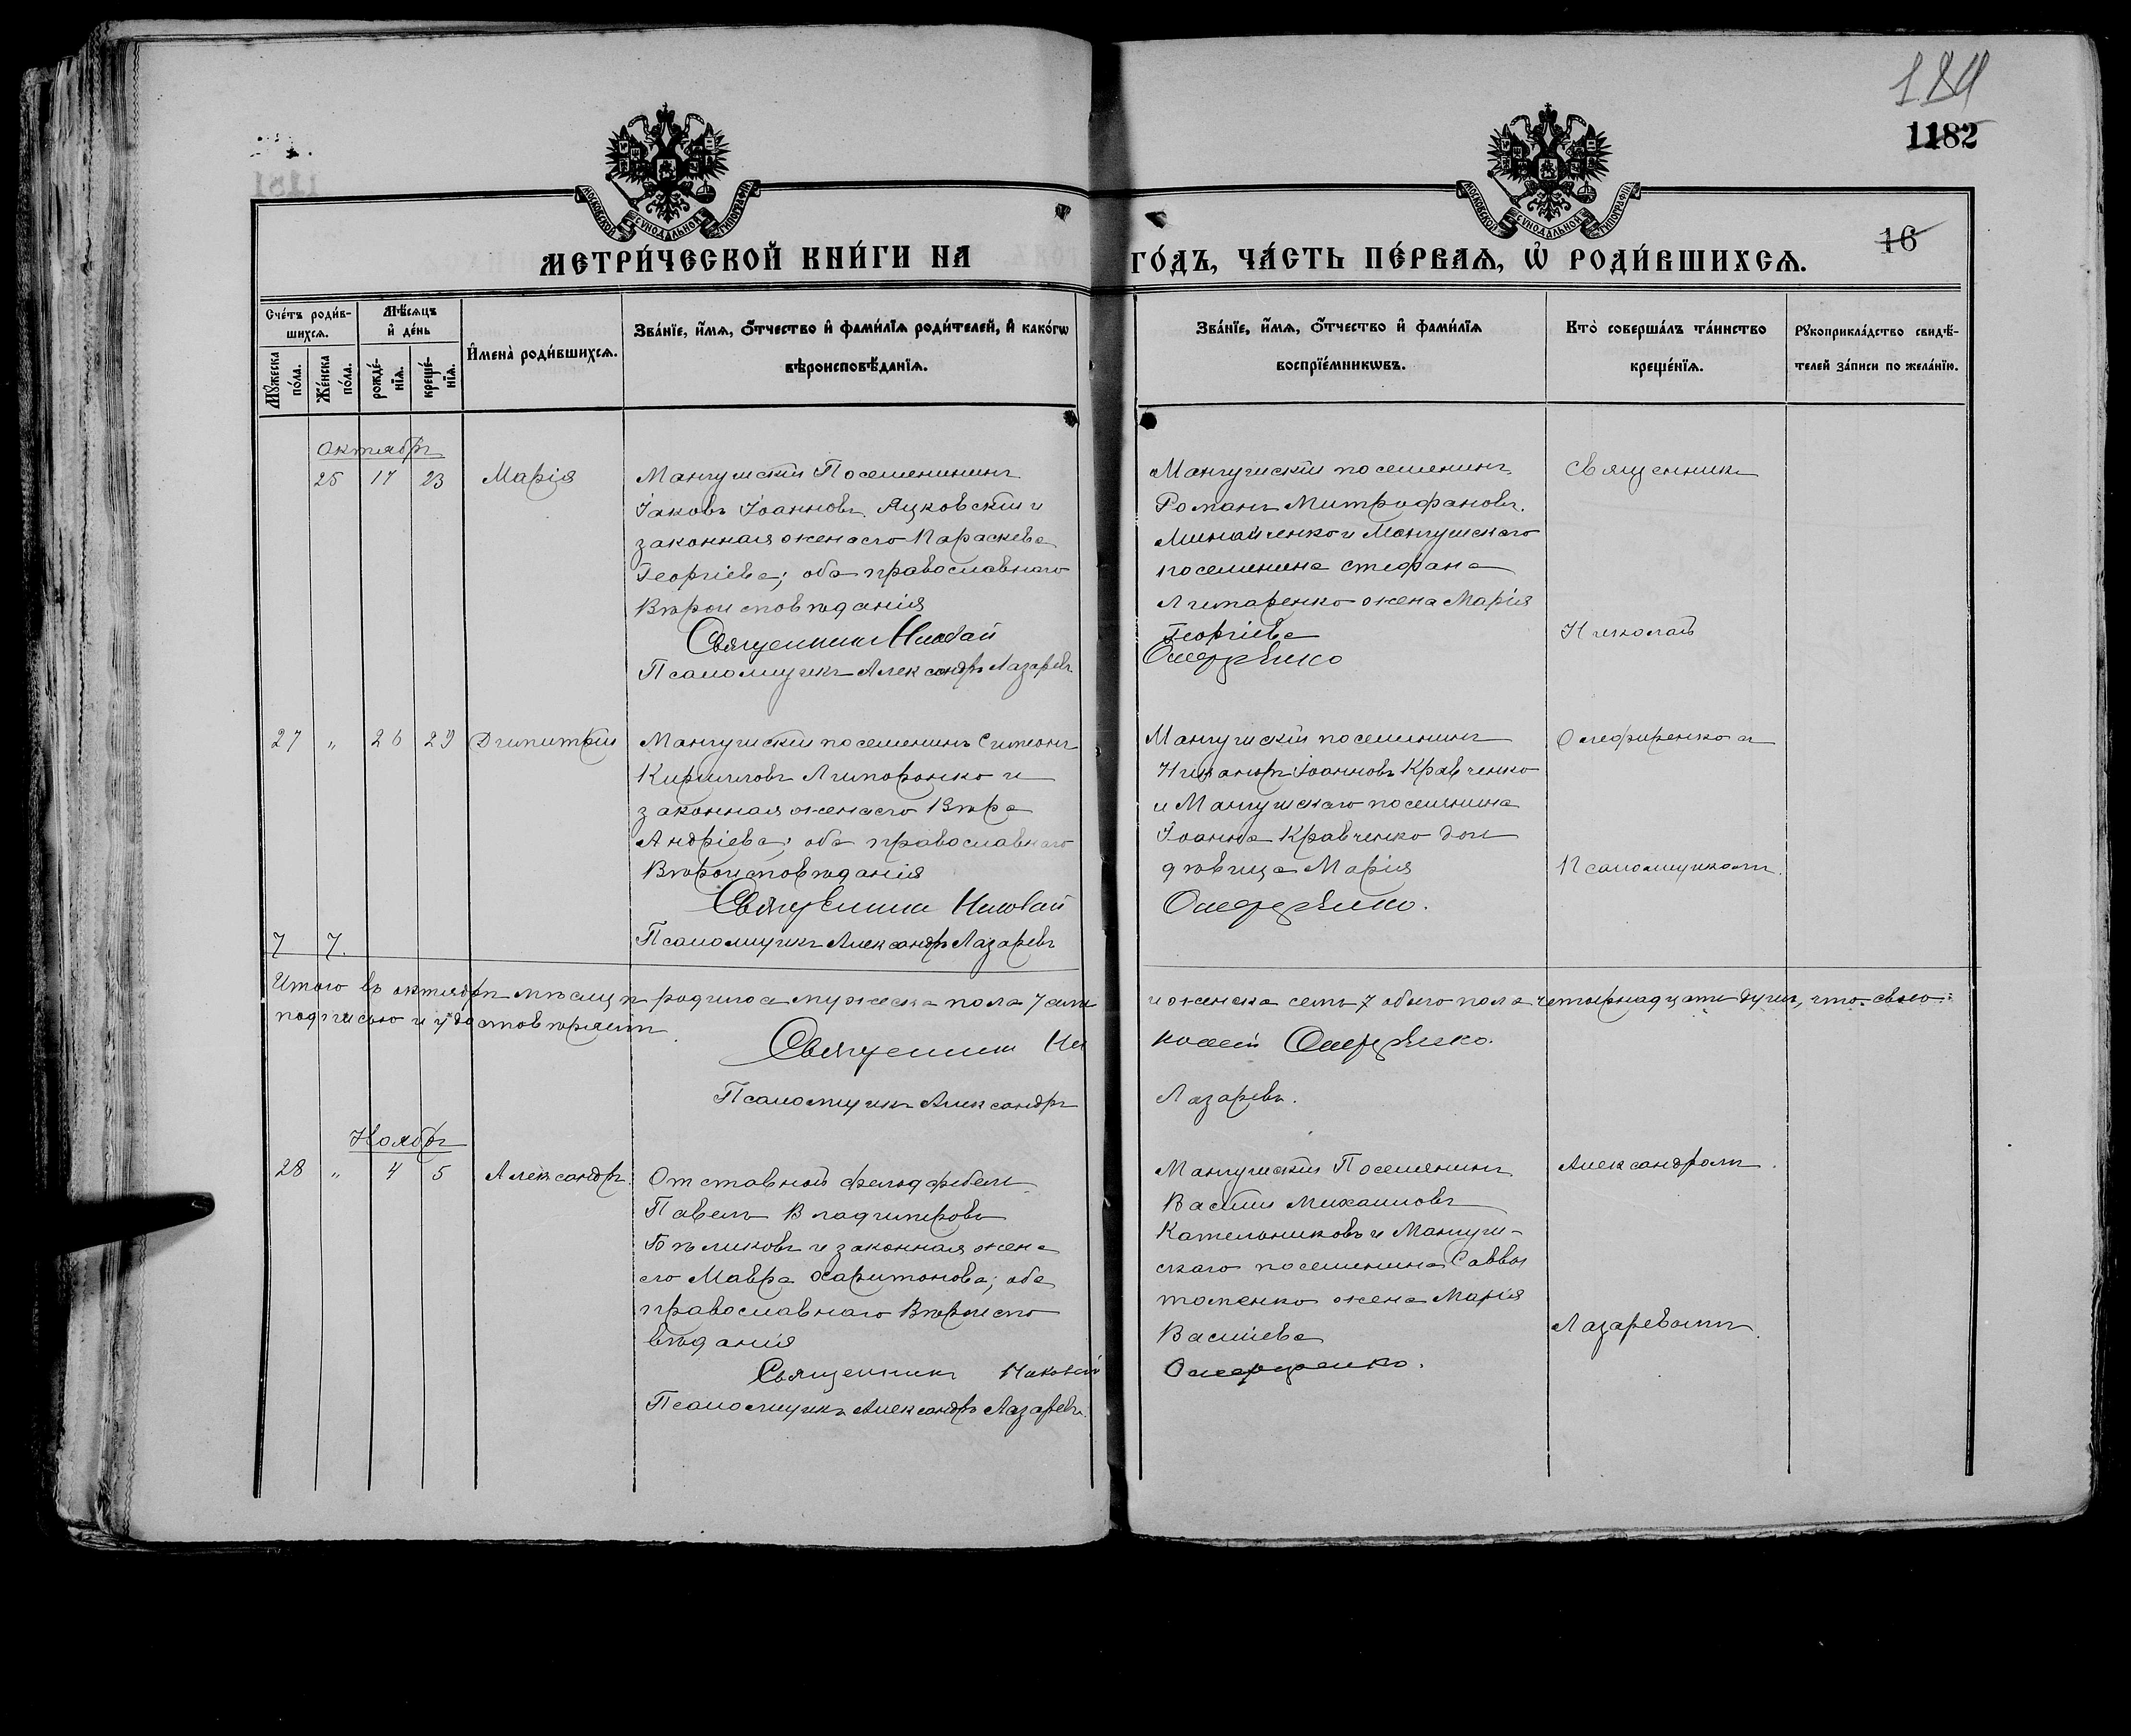 184
1182
16
МЕТРИ́ЧЕСКОЙ КНИ́ГИ НА ГО́ДЪ, ЧА́СТЬ ПЕ́РВАѦ, Ѡ҆ РОДИ́ВШИХСѦ.
Сче́тъ роди́в-
шихсѧ.
Мꙋ́жеска по́ла.
Же́нска по́ла.
Мѣ́сѧцъ
и҆ де́нь
рожде́-
нїѧ.
креще́-
нїѧ.
И҆мена̀ роди́вшихсѧ.
Зва́нїе, и҆́мѧ, ѻ҆́тчество и҆ фами́лїѧ роди́телей, и҆ како́гѡ
вѣроисповѣ́данїѧ.
Зва́нїе, и҆́мѧ, ѻ҆́тчество и҆ фами́лїѧ
воспрїе́мникѡвъ.
Кто̀ соверша́лъ та́инство
креще́нїѧ.
Рꙋкоприкла́дство свидѣ́-
телей за́писи по жела́нїю.
Октябрь
25 17 23 Марія
Мангушскій Поселянинъ
Іаковъ Іоанновъ Яцковскій и
законная жена его Параскева
Георгіева; оба православнаго
Вѣроисповѣданія
Священникъ Николай
Псаломщикъ Александръ Лазаревъ
Мангушскій поселянинъ
Романъ Митрофановъ
Минайленко и Мангушскаго
поселянина Стефана
Лимаренко жена Марія
Георгіева
Олефиренко
Священникъ
Николай
27 „ 26 29 Димитрій
Мангушскій поселянинъ Симеонъ
Кирилловъ Лимаренко и
законная жена его Вѣра
Андріева; оба православнаго
Вѣроисповѣданія
Священникъ Николай
Псаломщикъ Александръ Лазаревъ
Мангушскій поселянинъ
Никаноръ Іоанновъ Кравченко
и Мангушскаго поселянина
Іоанна Кравченко дочь
дѣвица Марія
Олефиренко.
Олефиренко съ
Псаломщикомъ
7 7.
Итого въ октябрѣ мѣсяцѣ родилось мужеска пола 7 семь и женска семь 7 обоего пола четырнадцать душъ, что своею
подписью и удостовѣряемъ
Священникъ Николай Олефиренко.
Псаломщикъ Александръ Лазаревъ.
Ноябрь
28 „ 4 5 Александръ
Отставной фельдфебель
Павелъ Владимировъ
Бѣликовъ и законная жена
его Мавра Харитонова; оба
православнаго Вѣроиспо
вѣданія
Священникъ Николай
Псаломщикъ Александръ Лазаревъ.
Мангушскій Поселянинъ
Василій Михаиловъ
Кательниковъ и Мангуш-
скаго поселянина Саввы
Томенко жена Марія
Васильева
Олефиренко.
Александромъ
Лазаревымъ.